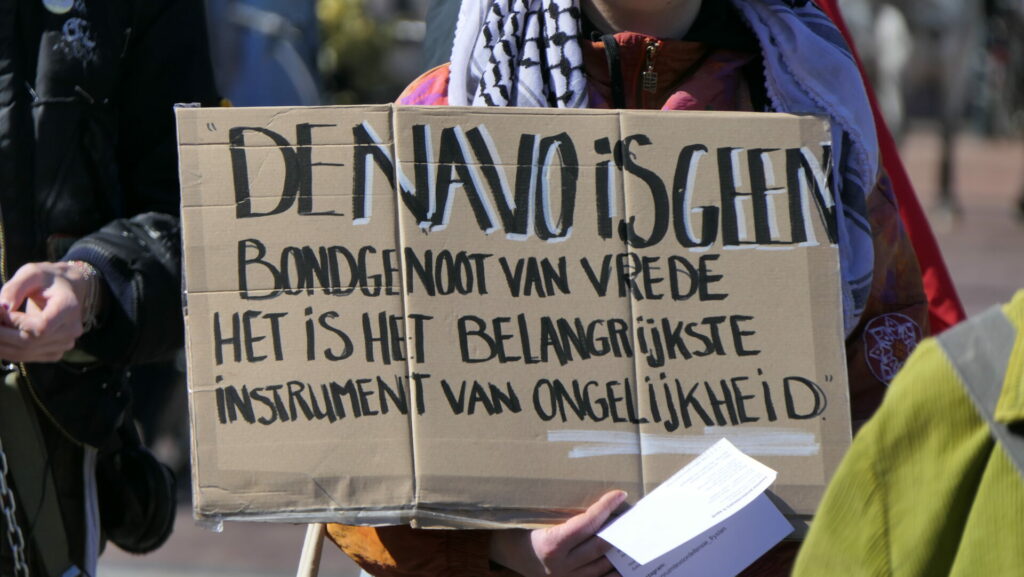 "DE NAVO iS GEEN
BONDGENOOT VAN VREDE
HET iS HET BELANGRijKSTE
iNSTRUMENT VAN ONGELIJKHEiD"